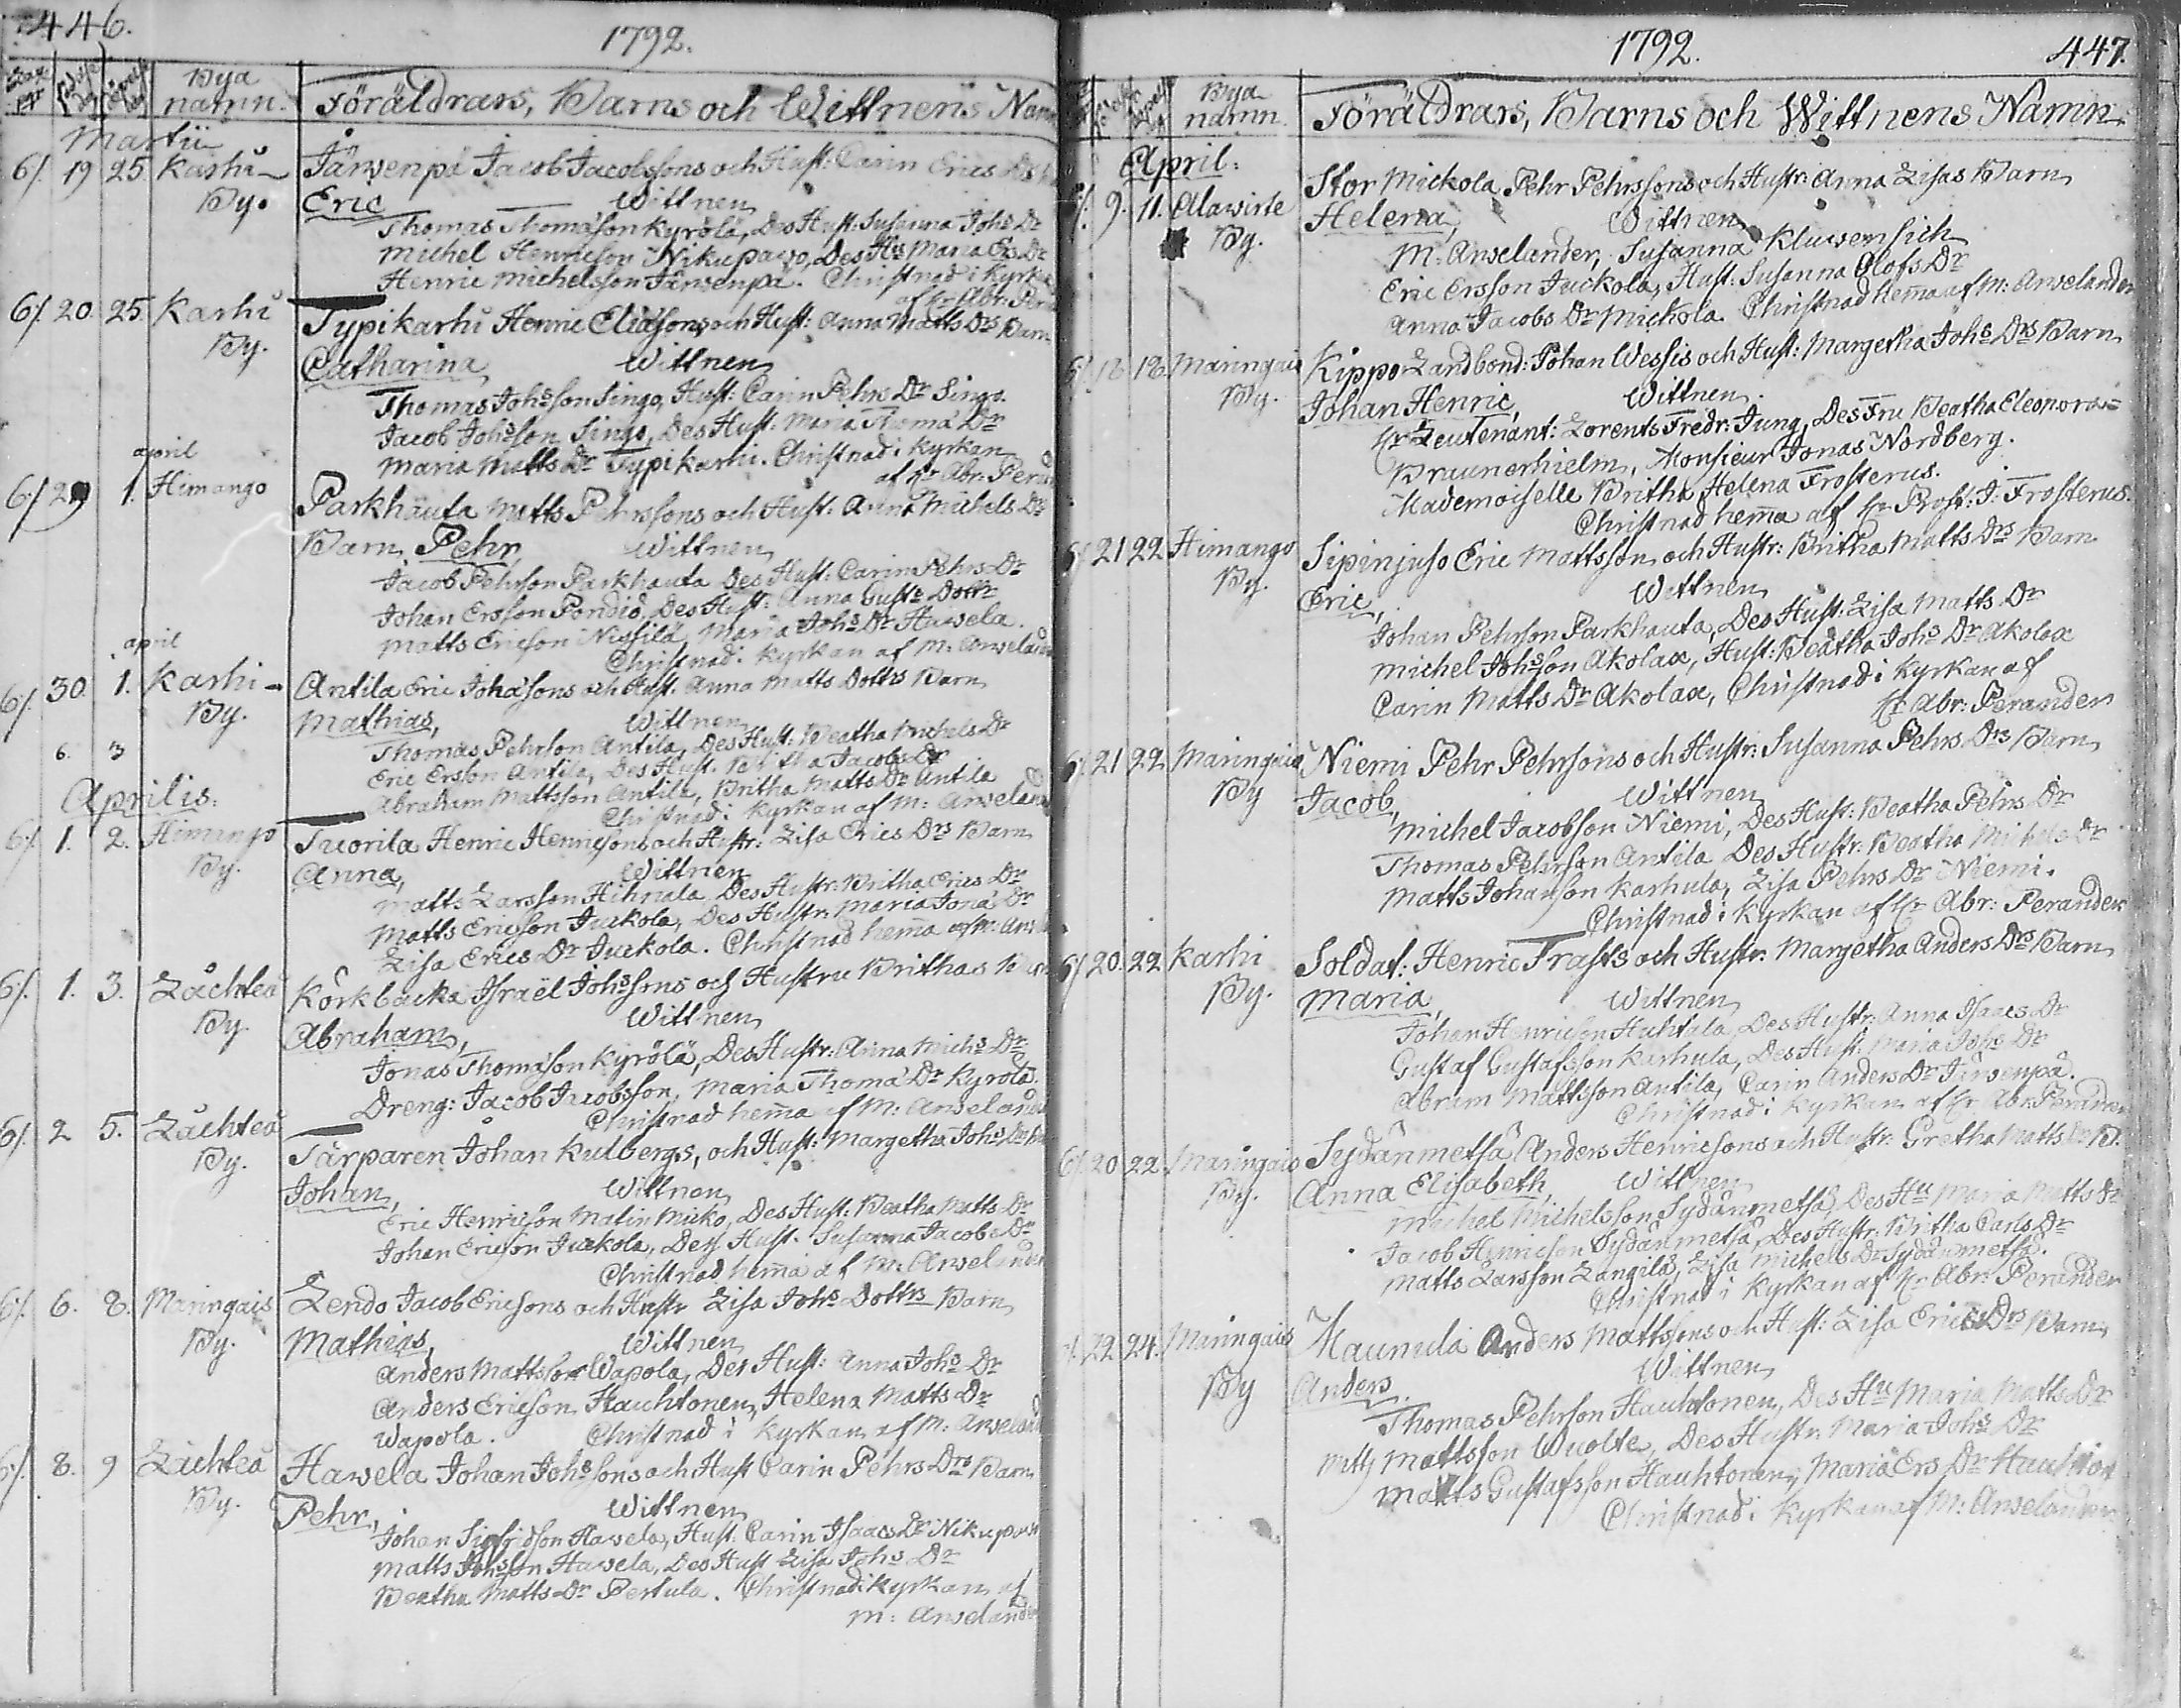 446.
1792.
Bya namn.
Föräldrars, Barns och Wittnens Namn
Martii
6/. 19 25 Karhi By. Järwenpä Jacob Jacobssons och Hust: Carin Erics Drs
Eric Wittnen
Thomas Thomasson Kyrölä, Des Hust. Susanna Johs Dr
Michel Henricson Nikupawo, Des Hu Maria Ers Dr
Henric Michelsson Järwenpä. Christnad i Kyrkan
af Hr Abr: Peran
6/. 20. 25. Karhi By. Typikarhi Henric Eliæsons och Hust: Anna Matts Drs Barn
Catharina Wittnen
Thomas Johsson Singo, Hust: Carin Pehrs Dr Singo.
Jacob Johsson Singo, Des Hust: Maria Thoma Dr
Maria Matts Dr Typikarhi. Christnad i Kyrkan
af Hr Abr: Peran
april
6/. 29 1. Himango Parkhauta Matts Pehrssons och Hust: Anna Michels Drs
Barn Pehr, Wittnen
Jacob Pehrson Parkhauta Des Hust: Carin Pehrs Dr
Johan Ersson Pondio, Des Hust: Anna Gusts Dottr
Matts Ericson Nissilä, Maria Johs Dr Hawela.
Christnad i Kyrkan af M: Anseland
april
6/. 30. 1. Karhi By. Antila Eric Johasons och Hust. Anna Matts Dottrs Barn
Mathias, Wittnen
Thomas Pehrson Antila, Des Hust: Beatha Michels Dr
Eric Ersson Antila, Des Hust. Britha Jacobs Dr
Abraham Mattsson Antila, Britha Matts Dr Antila
Christnad i Kyrkan af M: Anseland
6. 3
Aprilis.
6/. 1. 2. Himango By. Tuorila Henric Henricsons och Hustr: Lisa Erics Drs Barn
Anna, Wittnen
Matts Larsson Hihnala Des Hustr: Britha Erics Dr
Matts Ericson Juckola, Des Hustr: Maria Jona Dr
Lisa Erics Dr Juckola. Christnad hemma af M: Ans
6/. 1. 3. Låchteå By. Körkbacka Israël Johssons och Hustru Brithas Barn
Abraham, Wittnen
Jonas Thomasson Kyrölä, Des Hustr: Anna Michs Dr
Dreng: Jacob Jacobsson, Maria Thoma Dr Kyrölä.
Christnad hemma af M: Anseland
6/. 2 5. Låchteå By. Tårparen Johan Kulbergs, och Hust: Margetha Johs Drs
Johan, Wittnen
Eric Henricson Matin Micko, Des Hust: Beatha Matts Dr
Johan Ericson Juckola, Dess Hust. Susanna Jacobs Dr
Christnad hemma af M: Anselander
6/. 6. 8. Maringais By. Lendo Jacob Ericsons och Hustr Lisa Johs Dottrs Barn
Mathias, Wittnen
Anders Mattsson Wapola, Des Hust: Anna Johs Dr
Anders Ericson Hauhtonen, Helena Matts Dr
Wapola. Christnad i Kyrkan af M: Anseland
6/. 8. 9 Låchteå By. Hawela Johan Johssons och Hust Carin Pehrs Drs Barn
Pehr, Wittnen
Johan Sigfridson Hawela, Hust. Carin Isaacs Dr Nikupawo
Matts Johsson Hawela, Des Hust Lisa Johs Dr
Beatha Matts Dr Pertula. Christnad i Kyrkan af
M: Anselander
1792.
447.
Bya namn
Föräldrars, Barns och Wittnens Namn.
April:
9. 11. Alawirte By. Stor Mickola Pehr Pehrssons och Hustr: Anna Lisas Barn
Helena, Wittnen
M: Anselander, Susanna Kluwensich
Eric Ersson Juckola, Hust: Susanna Olofs Dr
Anna Jacobs Dr Mickola. Christnad hemma af M: Anselander
6/. 18 18. Maringais By. Kippo Landbond: Johan Wessis och Hust: Margetha Johs Drs Barn
Johan Henric, Wittnen
Hr Leutenant: Lorents Fredr: Jung, Des Fru Beatha Eleonora
Braunerhielm, Monsieur Jonas Nordberg.
Mademoiselle Britha Helena Frosterus.
Christnad hemma af Hr Prost: J: Frosterus.
6/. 21 22 Himango By. Sipinjuso Eric Mattsson och Hustr: Britha Matts Drs Barn
Eric, Wittnen
Johan Pehrson Parkhauta, Des Hust. Lisa Matts Dr
Michel Johsson Akolax, Hust: Beatha Johs Dr Akolax
Carin Matts Dr Akolax, Christnad i Kyrkan af
Hr Abr: Perander
6/. 21 22 Maringais By Niemi Pehr Pehrsons och Hustr: Susanna Pehrs Drs Barn
Jacob, Wittnen
Michel Jacobson Niemi, Des Hust: Beatha Pehrs Dr
Thomas Pehrson Antila Des Hustr: Beatha Michels Dr
Matts Johanson Karhula, Lisa Pehrs Dr Niemi.
Christnad i Kyrkan af Hr Abr: Perander
6/. 20. 22 Karhi By. Soldat: Henric Frasts och Hustr: Margetha Anders Drs Barn
Maria, Wittnen
Johan Henricson Huhtala, Des Hustr: Anna Isaacs Dr
Gustaf Gustafsson Karhula, Des Hust: Maria Johs Dr
Abram Mattsson Antila, Carin Anders Dr Järwenpä.
Christnad i Kyrkan af Hr Abr Perander
6/. 20 22. Maringais By. Sydänmetsä Anders Henricsons och Hustr: Gretha Matts Dr B.
Anna Elisabeth, Wittnen
Michel Michelsson Sydänmetsä, Des Hu Maria Matts Dr
Jacob Henricson Sydänmetsä, Des Hustr: Britha Carls Dr
Matts Larsson Långilä, Lisa Michels Dr Sydänmetsä.
Christnad i Kyrkan af Hr Abr: Perander
22 24. Maringais By Maunula Anders Mattssons och Hust: Lisa Erics Drs Barn
Anders, Wittnen
Thomas Pehrson Hauhtonen, Des Hu Maria Matts Dr
Matts Mattsson Wuolte, Des Hustr: Maria Johs Dr
Matts Gustafsson Hauhtonen, Maria Ers Dr Hauhton
Christnad i Kyrkan af M: Anselander